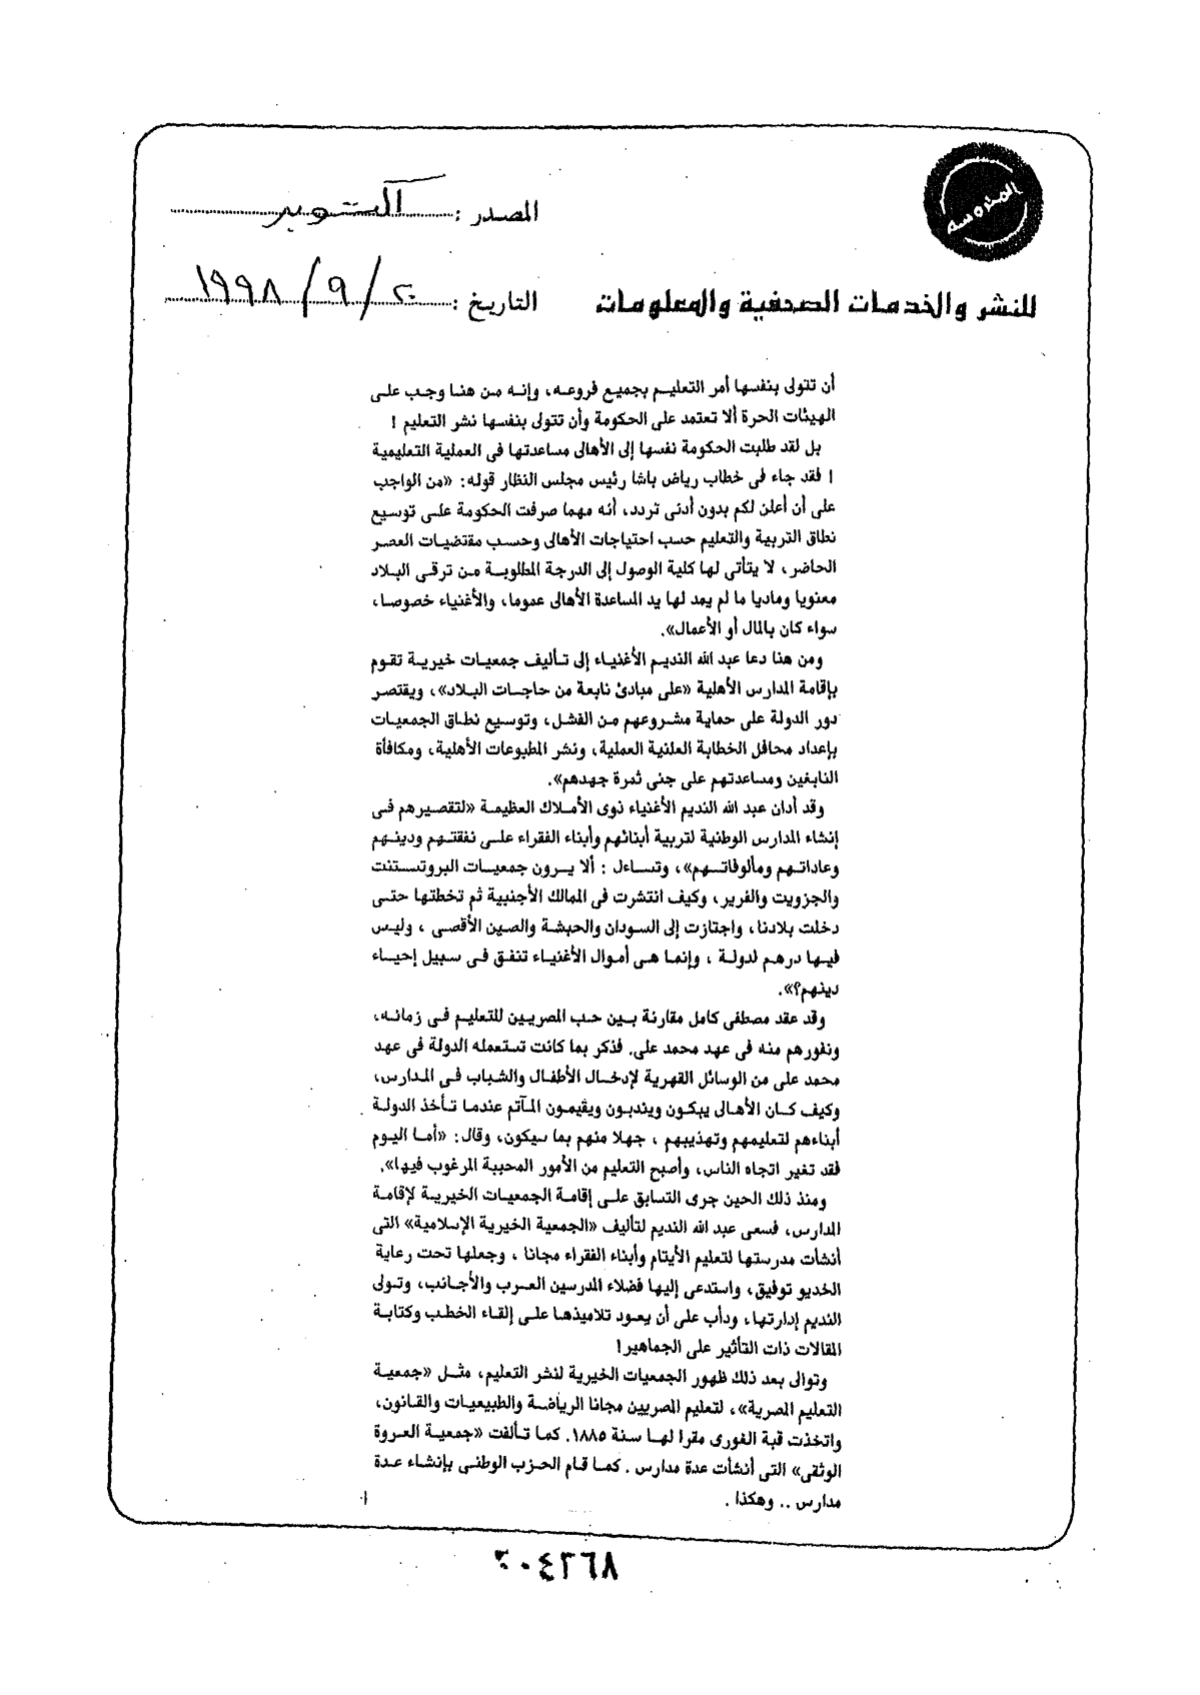 المحروسة
المصدر : أكتوبر
للنشر والخدمات الصحفية والمعلومات
التاريخ : ٢٠ / ٩ / ١٩٩٨
أن تتولى بنفسها أمر التعليم بجميع فروعه، وإنه من هنا وجب على
الهيئات الحرة ألا تعتمد على الحكومة وأن تتولى بنفسها نشر التعليم !
بل لقد طلبت الحكومة نفسها إلى الأهالى مساعدتها فى العملية التعليمية
! فقد جاء فى خطاب رياض باشا رئيس مجلس النظار قوله: «من الواجب
على أن أعلن لكم بدون أدنى تردد، أنه مهما صرفت الحكومة على توسيع
نطاق التربية والتعليم حسب احتياجات الأهالى وحسب مقتضيات العصر
الحاضر، لا يتأتى لها كلية الوصول إلى الدرجة المطلوبة من ترقى البلاد
معنويا وماديا ما لم يمد لها يد المساعدة الأهالى عموما، والأغنياء خصوصا،
سواء كان بالمال أو الأعمال».
ومن هنا دعا عبد الله النديم الأغنياء إلى تأليف جمعيات خيرية تقوم
بإقامة المدارس الأهلية «على مبادئ نابعة من حاجات البلاد»، ويقتصر
دور الدولة على حماية مشروعهم من الفشل، وتوسيع نطاق الجمعيات
بإعداد محافل الخطابة العلنية العملية، ونشر المطبوعات الأهلية، ومكافأة
النابغين ومساعدتهم على جنى ثمرة جهدهم».
وقد أدان عبد الله النديم الأغنياء ذوى الأملاك العظيمة «لتقصيرهم فى
إنشاء المدارس الوطنية لتربية أبنائهم وأبناء الفقراء على نفقتهم ودينهم
وعاداتهم ومألوفاتهم»، وتساءل : ألا يرون جمعيات البروتستنت
والجزويت والفرير، وكيف انتشرت فى الممالك الأجنبية ثم تخطتها حتى
دخلت بلادنا، واجتازت إلى السودان والحبشة والصين الأقصى ، وليس
فيها درهم لدولة ، وإنما هى أموال الأغنياء تنفق فى سبيل إحياء
دينهم؟».
وقد عقد مصطفى كامل مقارنة بين حب المصريين للتعليم فى زمانه،
ونفورهم منه فى عهد محمد على. فذكر بما كانت تستعمله الدولة فى عهد
محمد على من الوسائل القهرية لإدخال الأطفال والشباب فى المدارس،
وكيف كان الأهالى يبكون ويندبون ويقيمون المآتم عندما تأخذ الدولة
أبناءهم لتعليمهم وتهذيبهم ، جهلا منهم بما سيكون، وقال: «أما اليوم
فقد تغير اتجاه الناس، وأصبح التعليم من الأمور المحببة المرغوب فيها».
ومنذ ذلك الحين جرى التسابق على إقامة الجمعيات الخيرية لإقامة
المدارس، فسعى عبد الله النديم لتأليف «الجمعية الخيرية الإسلامية» التى
أنشأت مدرستها لتعليم الأيتام وأبناء الفقراء مجانا ، وجعلها تحت رعاية
الخديو توفيق، واستدعى إليها فضلاء المدرسين العرب والأجانب، وتولى
النديم إدارتها، ودأب على أن يعود تلاميذها على إلقاء الخطب وكتابة
المقالات ذات التأثير على الجماهير!
وتوالى بعد ذلك ظهور الجمعيات الخيرية لنشر التعليم، مثل «جمعية
التعليم المصرية»، لتعليم المصريين مجانا الرياضة والطبيعيات والقانون،
واتخذت قبة الغورى مقرا لها سنة ١٨٨٥. كما تألفت «جمعية العروة
الوثقى» التى أنشأت عدة مدارس . كما قام الحزب الوطنى بإنشاء عدة
مدارس .. وهكذا .
٢٠٤٢٦٨